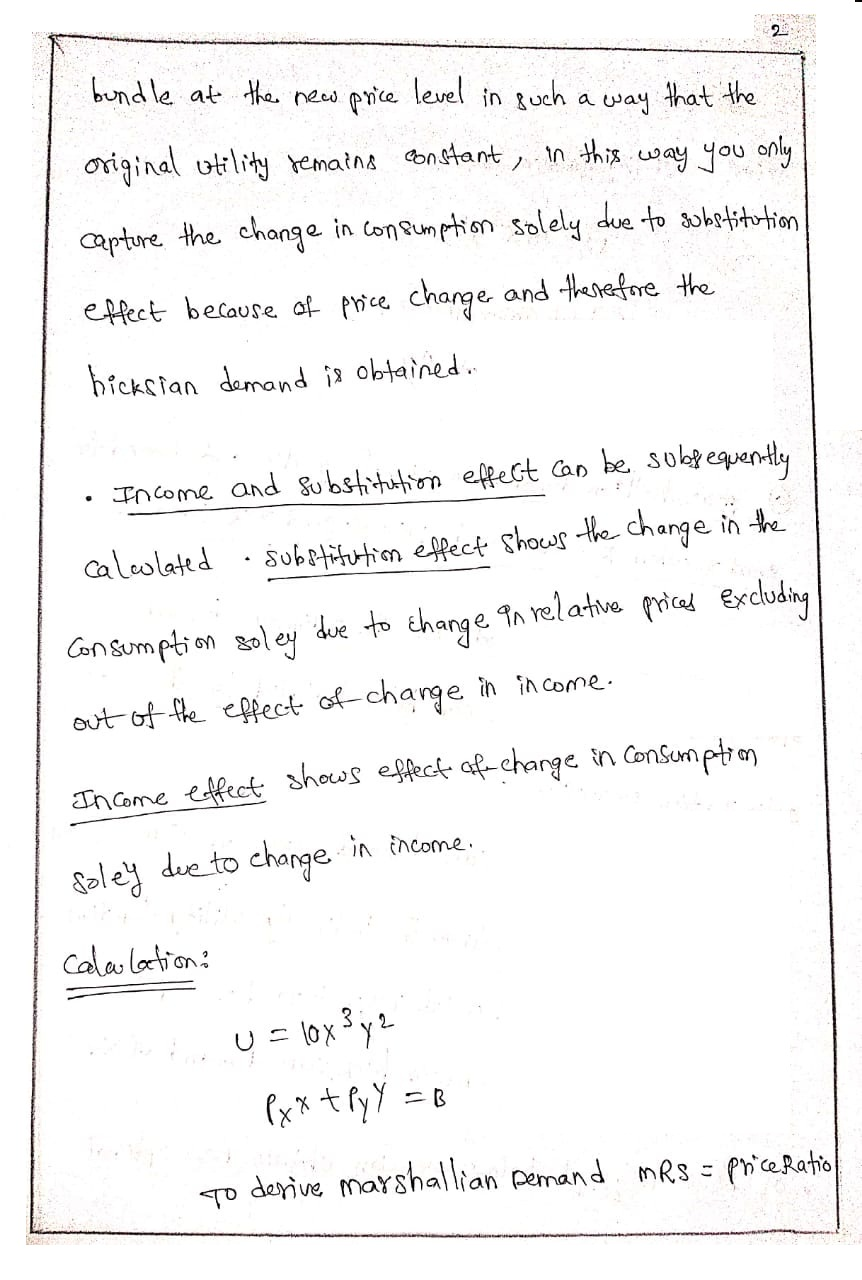 2
bundle at the new price level in such a way that the
original utility remains constant, in this way you only
capture the change in consumption solely due to substitution
effect because of price change and therefore the
hicksian demand is obtained.
• Income and substitution effect can be subsequently
calculated . substitution effect shows the change in the
Consumption soley due to change in relative prices excluding
out of the effect of change in income.
Income effect shows effect of change in consumption
soley due to change in income.
Calculation:
U = 10x³y²
Pxx + PyY = B
To derive marshallian Demand MRS = price Ratio